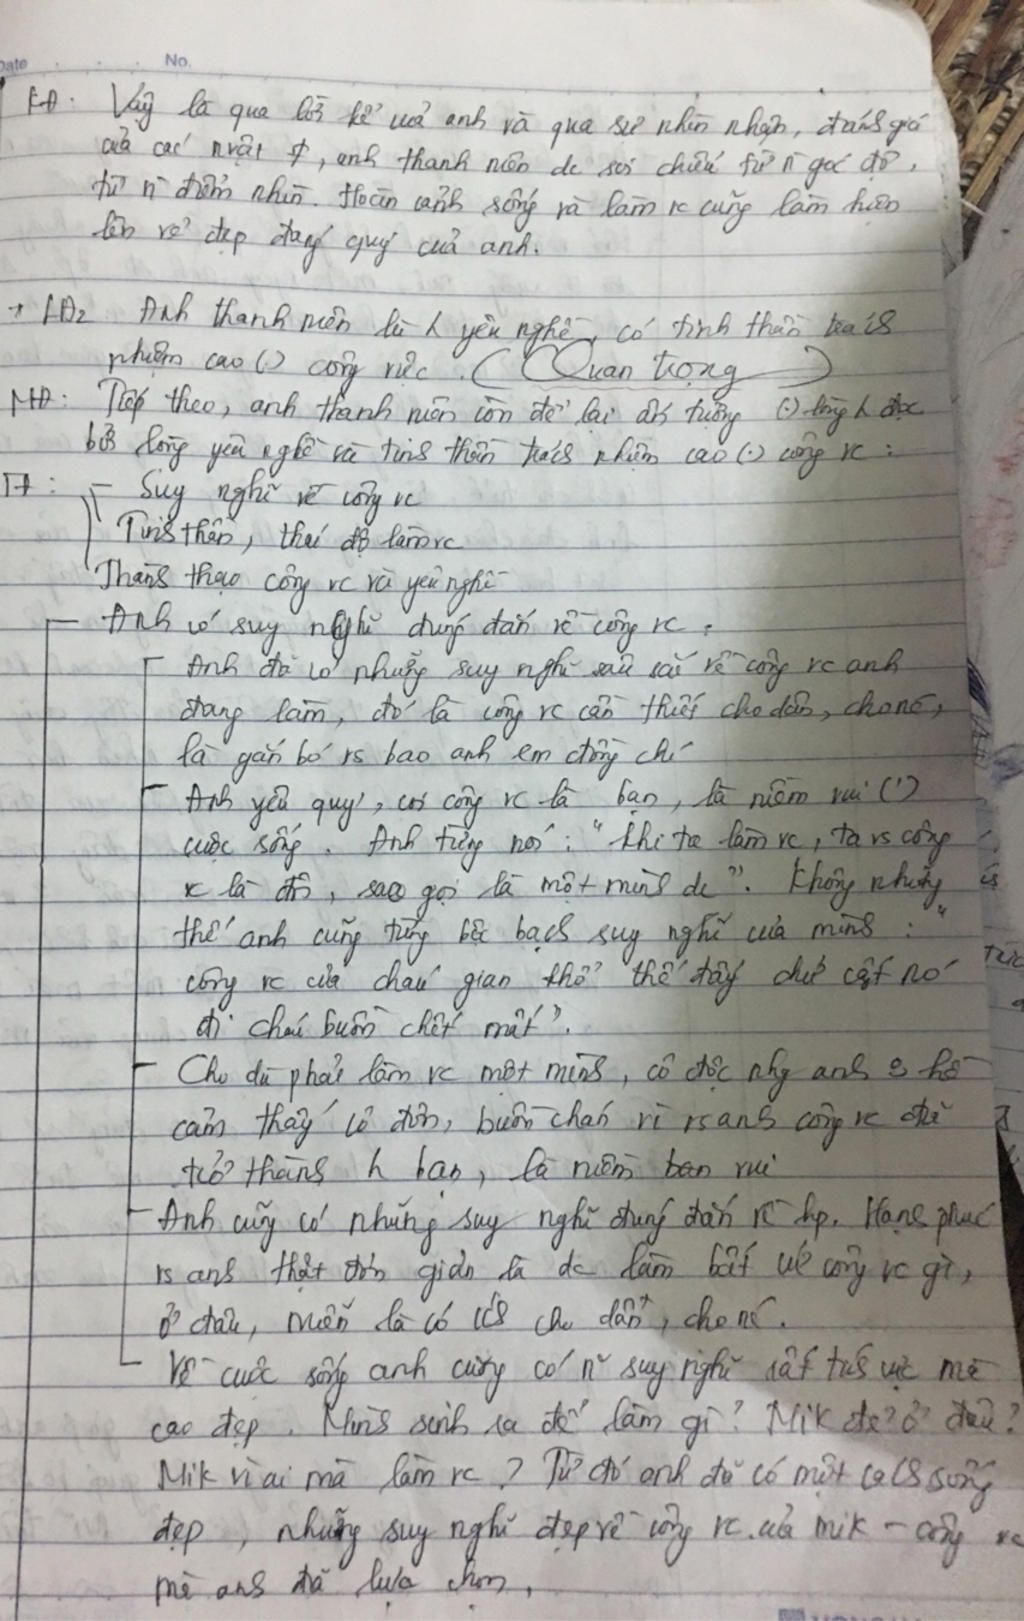 Date No.
KĐ: Vậy là qua lời kể của anh và qua sự nhìn nhận, đánh giá
của các nvật ≠, anh thanh niên dc soi chiếu từ n̄ góc độ,
từ n̄ điểm nhìn. Hoàn cảnh sống và làm vc cũng làm hiện
lên vẻ đẹp đáng quý của anh.
+ LĐ2 Anh thanh niên là yêu nghề, có tinh thần trách
nhiệm cao (.) công việc. (Quan trọng)
MĐ: Tiếp theo, anh thanh niên còn để lại ấn tượng (.) lòng đọc
bởi lòng yêu nghề và tinh thần trách nhiệm cao (.) công vc:
TĐ: - Suy nghĩ về công vc
Tinh thần, thái độ làm vc
Thành thạo công vc và yêu nghề
- Anh có suy nghĩ đúng đắn về công vc:
Anh đã có những suy nghĩ sâu sắc về công vc anh
đang làm, đó là công vc cần thiết cho dân, cho nc,
là gắn bó vs bao anh em đồng chí
- Anh yêu quý, coi công vc là bạn, là niềm vui (.)
cuộc sống. Anh từng nói: "Khi ta làm vc, ta vs công
vc là đôi, sao gọi là một mình dc". Không những
thế anh cũng từng bộc bạch suy nghĩ của mình: "
công vc của cháu gian khổ thế đấy chứ cất nó
đi cháu buồn chết mất".
- Cho dù phải làm vc một mình, cô độc nhg anh hề
cảm thấy cô đơn, buồn chán vì vs anh công vc đã
trở thành bạn, là niềm ban vui
- Anh cũng có những suy nghĩ đúng đắn về hp. Hạnh phúc
vs anh thật đơn giản là dc làm bất cứ công vc gì,
ở đâu, miễn là có ích cho dân, cho nc.
- Về cuộc sống anh cũng có n̄ suy nghĩ rất tích cực mà
cao đẹp. Mình sinh ra để làm gì? Mik đẻ ở đâu?
Mik vì ai mà làm vc? Từ đó anh đã có một cách sống
đẹp, những suy nghĩ đẹp về công vc của mik - công vc
mà anh đã lựa chọn.